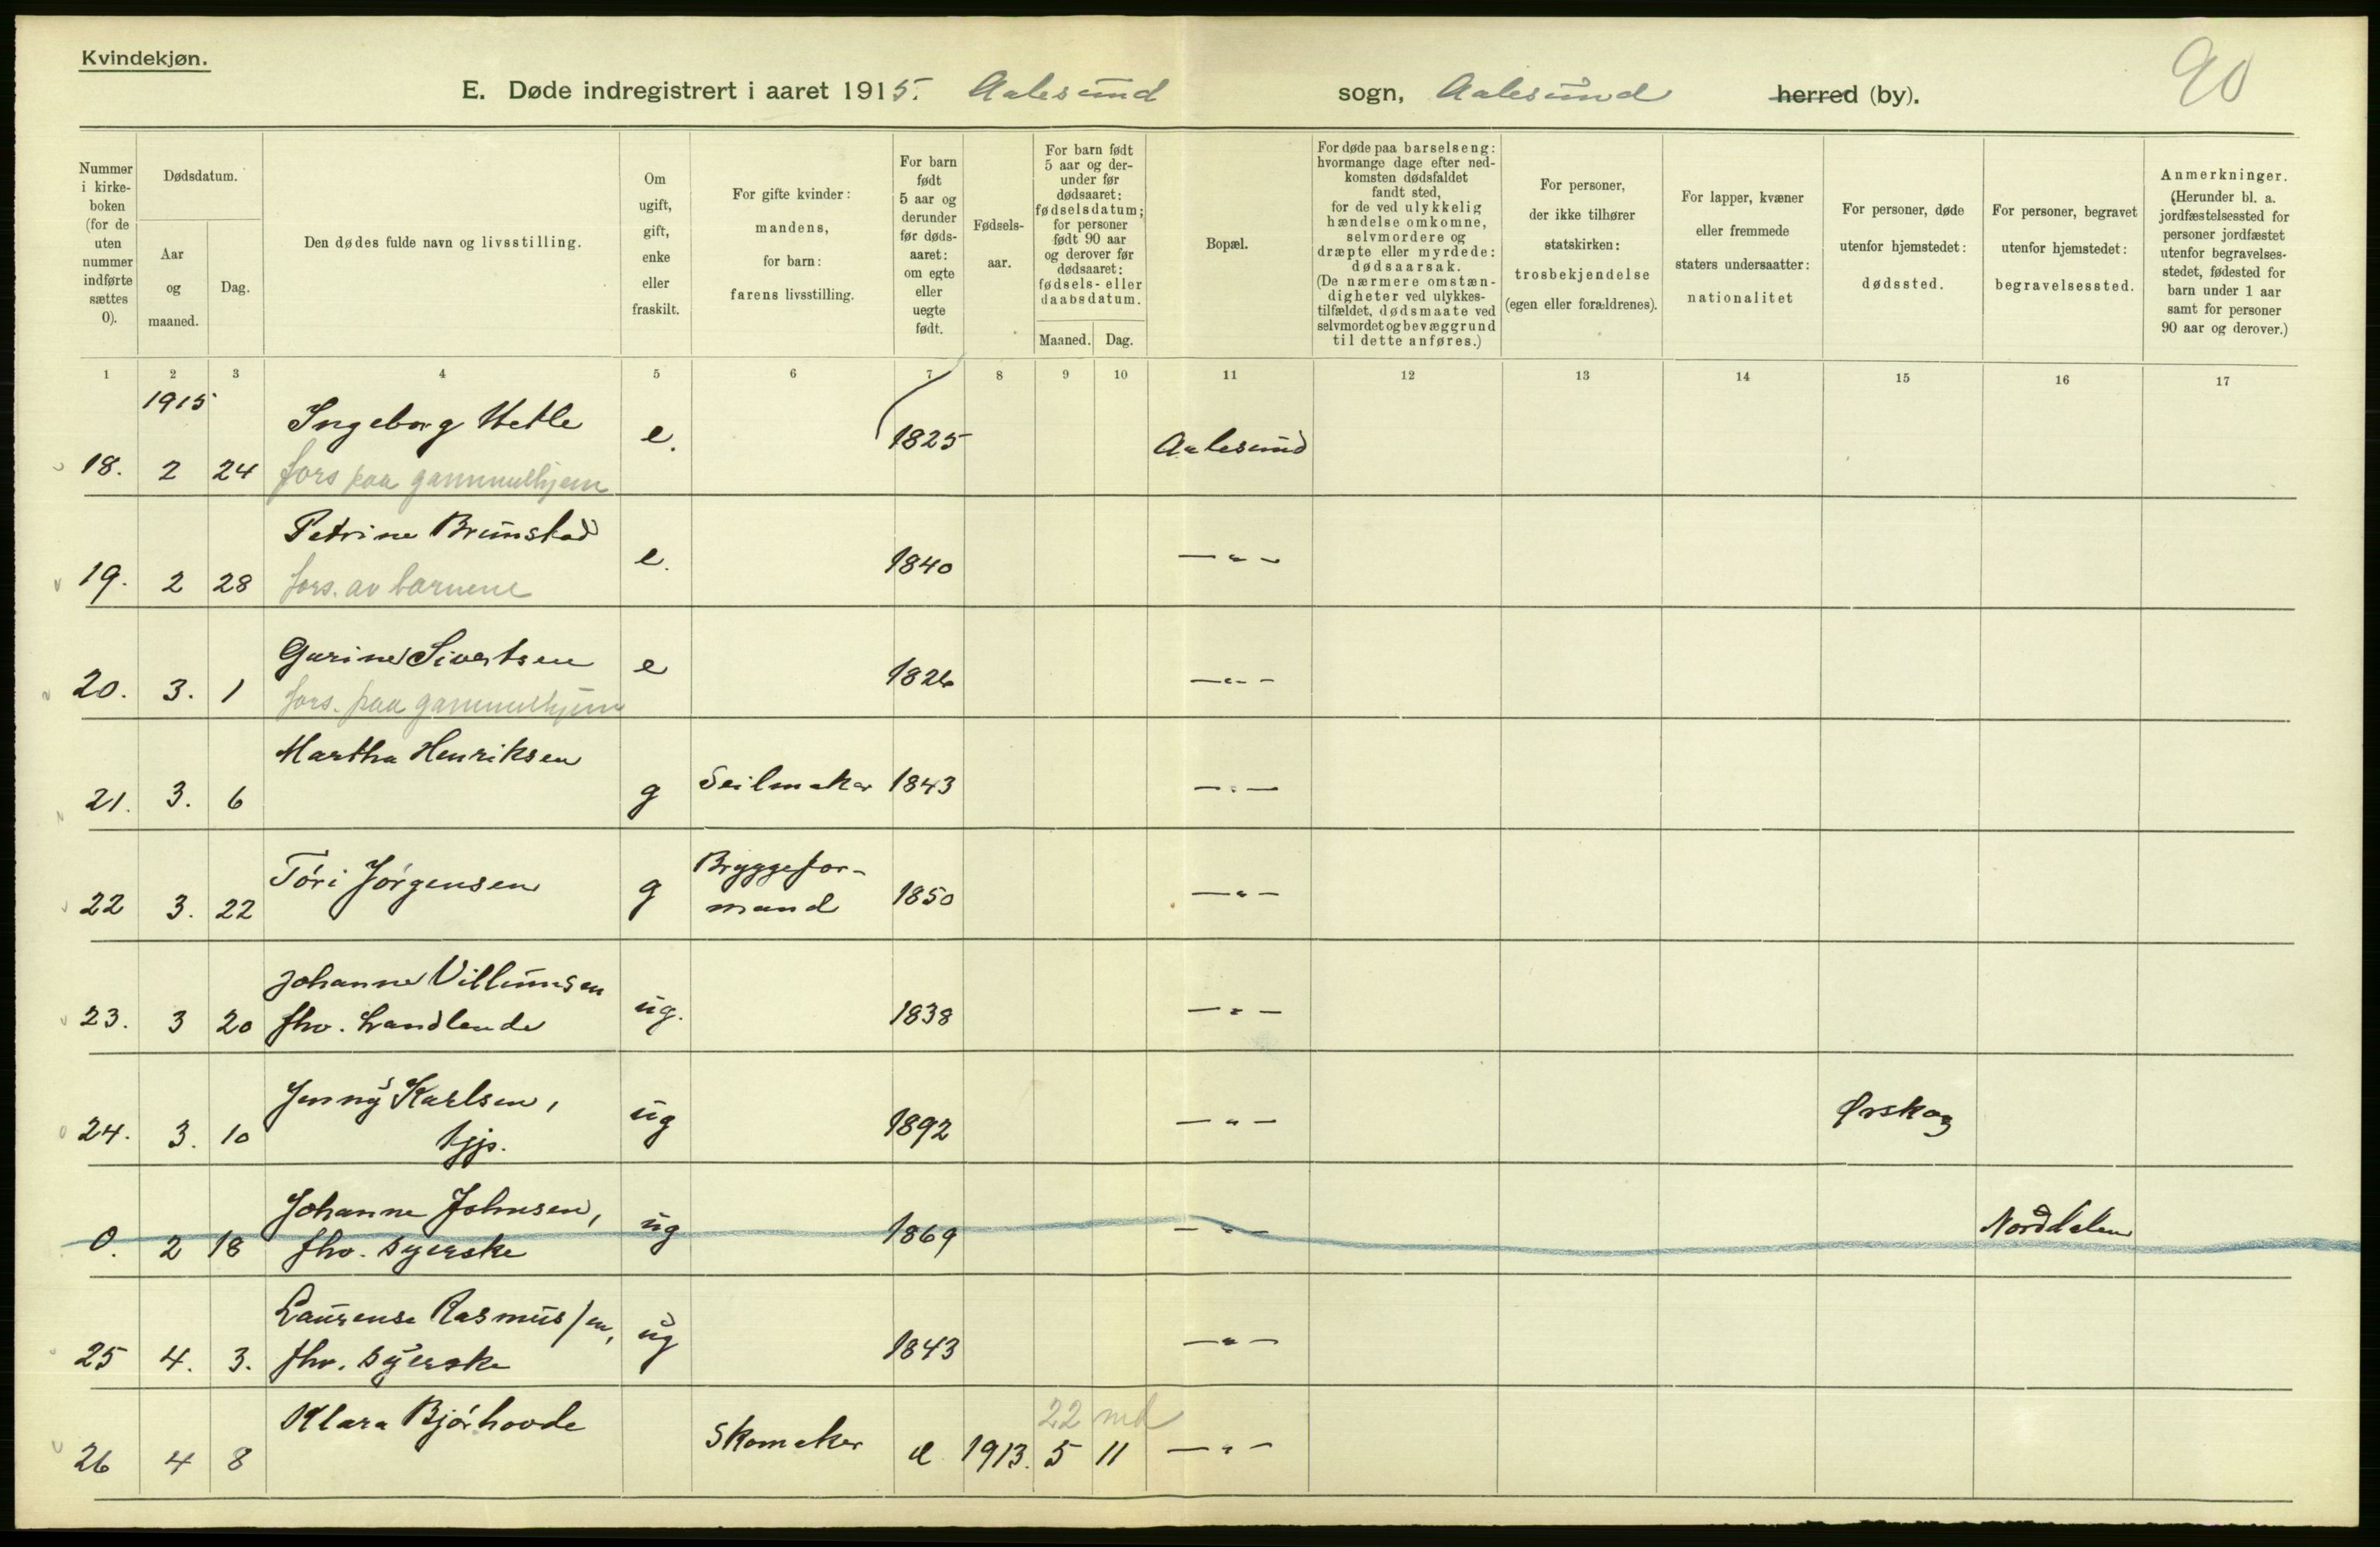 Kvindekjøn.
90
E. Døde indregistrert i aaret 1915. Aalesund sogn, Aalesund herred (by).
Nummer i kirke-boken (for de uten nummer indførte sættes 0).
Dødsdatum.
Aar og maaned.
Dag.
Den dødes fulde navn og livsstilling.
Om ugift, gift, enke eller fraskilt.
For gifte kvinder: mandens, for barn: farens livsstilling.
For barn født 5 aar og derunder før døds-aaret: om egte eller uegte født.
Fødsels-aar.
For barn født 5 aar og der-under før dødsaaret: fødselsdatum; for personer født 90 aar og derover før dødsaaret: fødsels- eller daabsdatum.
Maaned. Dag.
Bopæl.
For døde paa barselseng: hvormange dage efter ned-komsten dødsfaldet fandt sted, for de ved ulykkelig hændelse omkomne, selvmordere og dræpte eller myrdede: dødsaarsak. (De nærmere omstæn-digheter ved ulykkes-tilfældet, dødsmaate ved selvmordet og bevæggrund til dette anføres.)
For personer, der ikke tilhører statskirken: trosbekjendelse (egen eller forældrenes).
For lapper, kvæner eller fremmede staters undersaatter: nationalitet
For personer, døde utenfor hjemstedet: dødssted.
For personer, begravet utenfor hjemstedet: begravelsessted.
Anmerkninger. (Herunder bl. a. jordfæstelsessted for personer jordfæstet utenfor begravelses-stedet, fødested for barn under 1 aar samt for personer 90 aar og derover.)
1 2 3 4 5 6 7 8 9 10 11 12 13 14 15 16 17
1915
18. 2 24 Ingeborg Hetle e. 1825 Aalesund
fors paa gammelhjem
19. 2 28 Petrine Brunstad e. 1840 — " —
fors. av barnene
20. 3. 1 Gurine Sivertsen e 1826 — " —
fors. paa gammelhjem
21. 3. 6 Martha Henriksen g Seilmaker 1843 — " —
22 3. 22 Töri Jörgensen g Bryggefor-
mand 1850 — " —
23. 3 20 Johanne Villumsen ug. 1838 — " —
fhv. Handlende
24. 3. 10 Jenny Karlsen, ug 1892 — " — Ørskog
tjp.
0. 2 18 Johanne Johnsen, ug 1869 — " — Norddalen
fhv. syerske
25 4. 3. Laurense Rasmussen, ug 1843 — " —
fhv. syerske
22 md
26 4 8 Klara Bjórhovde Skomaker e 1913. 5 11 — " —